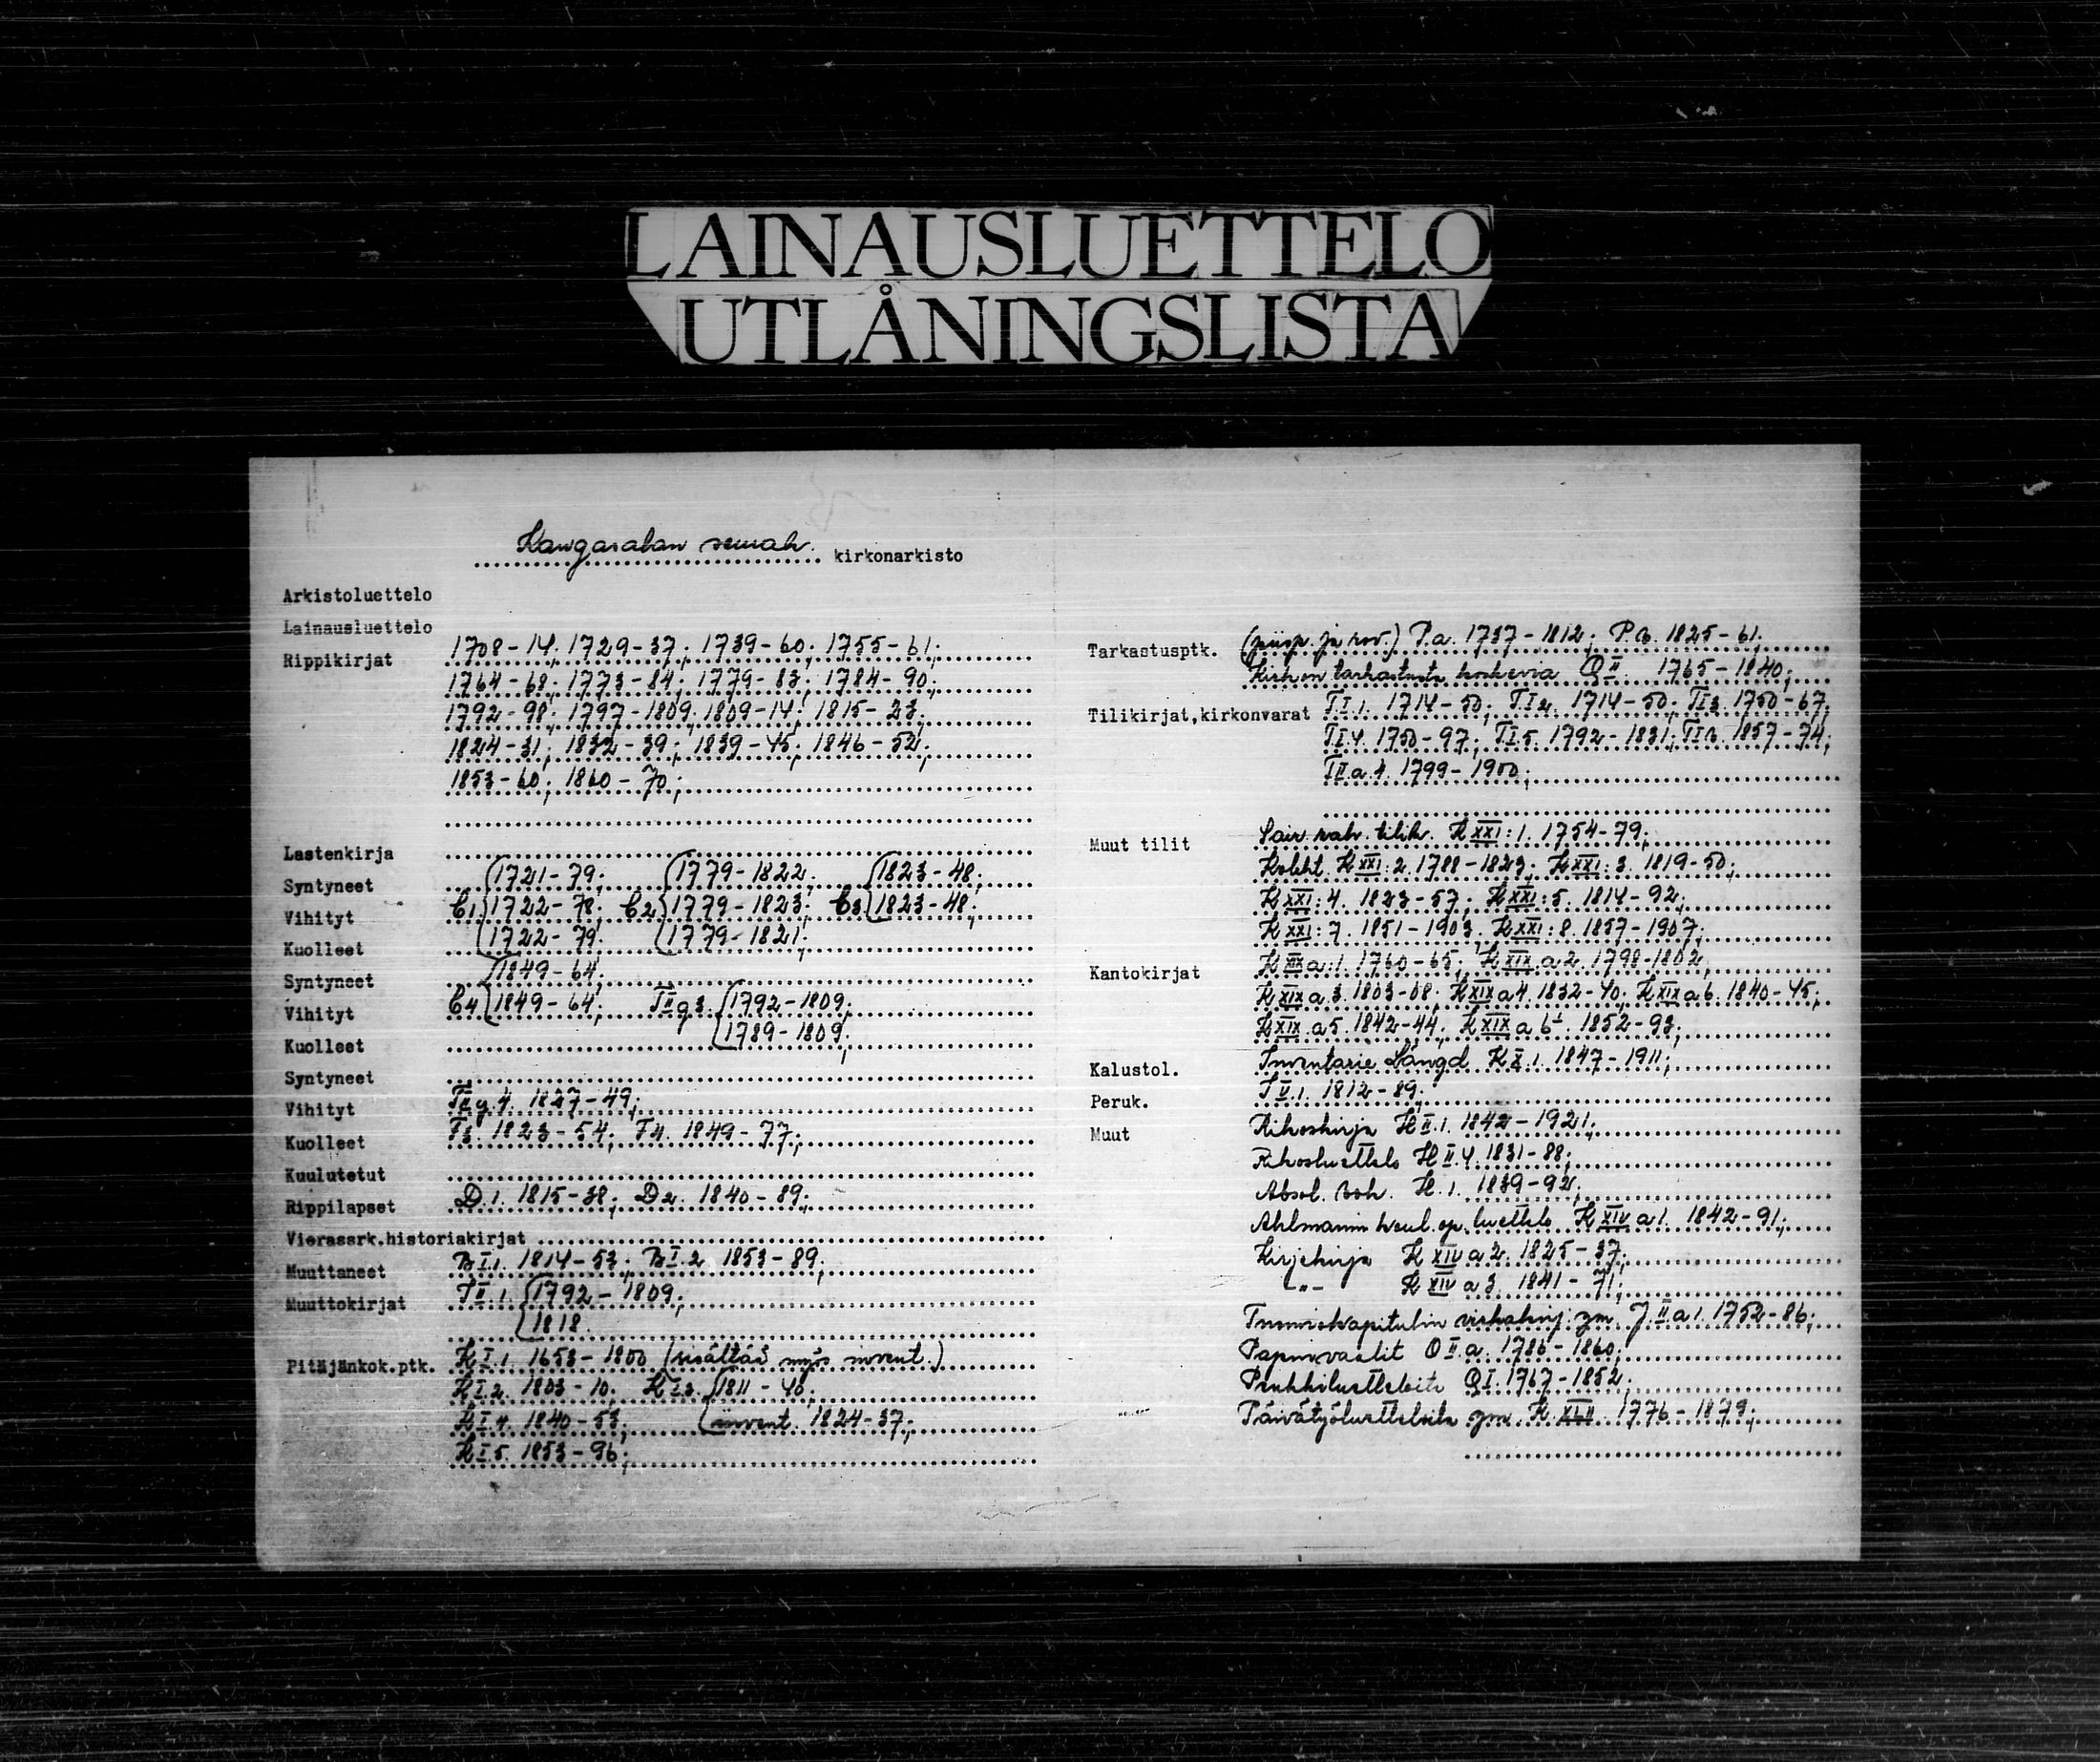 LAINAUSLUETTELO
UTLÅNINGSLISTA
Kangasalan seurak. kirkonarkisto
Arkistoluettelo
Lainausluettelo
Rippikirjat 1708-14; 1729-37; 1739-60; 1755-61;
1764-68; 1773-84; 1779-83; 1784-90;
1792-98; 1797-1809; 1809-14; 1815-23;
1824-31; 1832-39; 1839-45; 1846-52;
1853-60; 1860-70;
Lastenkirja
Syntyneet 1721-79; 1779-1822; 1823-48;
Vihityt C1 1722-78; C2 1779-1823; C3 1823-48;
Kuolleet 1722-79; 1779-1821;
Syntyneet 1849-64;
Vihityt C4 1849-64; T II g 3. 1792-1809;
Kuolleet 1789-1809;
Syntyneet
Vihityt T II g. 4. 1827-49;
Kuolleet F3. 1823-54; F4. 1849-77;
Kuulutetut
Rippilapset D.1. 1815-38; D2. 1840-89;
Vierassrk.historiakirjat
Muuttaneet B I.1. 1814-53; B I.2 1853-89;
Muuttokirjat T II.1. 1792-1809;
1818.
Pitäjänkok.ptk. K I.1. 1653-1800 (sisältää myös invent.)
K I.2. 1803-10; K I.3. 1811-40;
K I.4. 1840-53; invent. 1824-37;
K I.5. 1853-96;
Tarkastusptk. (piisp. ja rov.) P.a. 1737-1812; P.b. 1825-61;
Kirkon tarkastusta koskevia Q II. 1765-1840;
Tilikirjat,kirkonvarat T I.1. 1714-50; T I 2. 1714-50; T I 3. 1750-67;
T I.4. 1750-97; T I.5. 1792-1831; 1857-74;
T II a.4. 1799-1900;
Muut tilit Sair. rah. tilik. K XXI:1. 1754-79;
Kolekt. K XXI:2. 1788-1823; K XXI:3. 1819-50;
K XXI:4. 1823-57; K XXI:5. 1814-92;
K XXI:7. 1851-1903. K XXI:8. 1857-1907;
Kantokirjat K XIX a:1. 1760-65; K XIX. a 2. 1798-1802;
K XIX a 3. 1803-08; K XIX a 4. 1832-40; K XIX a 6. 1840-45;
K XIX. a 5. 1842-44; K XIX a 1852-93;
Kalustol. Inventarie Längd K X.1. 1847-1911;
Peruk. T V.1. 1812-89;
Muut Rikoskirja H II.1. 1842-1921;
Rikosluettelo H II.4. 1831-88;
Absol. H.1. 1839-92;
Ahlmanin koul. op. luettelo K XIV a 1. 1842-91;
Kirjekirja K XIV a 2. 1825-37;
-"- K XIV a 3. 1841-71;
Tuomiokapitulin virkakirj. ym. J. II a 1. 1752-86;
Papinvaalit O II.a. 1786-1860;
Penkkiluetteloita Q I. 1767-1852;
Päivätyöluetteloita ym. K 1776-1879;